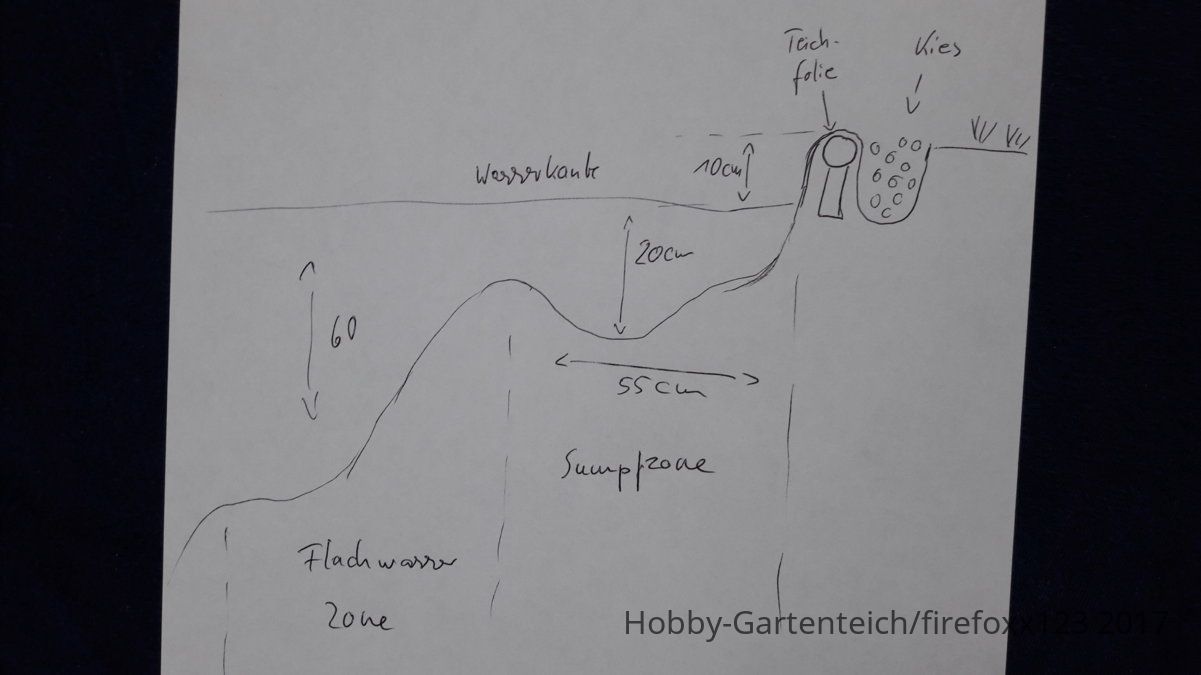 Teich-
folie
Kies
Wasserkante
10cm
20cm
60
55cm
Sumpfzone
Flachwasser
Zone
Hobby-Gartenteich/firefoxx123 2017